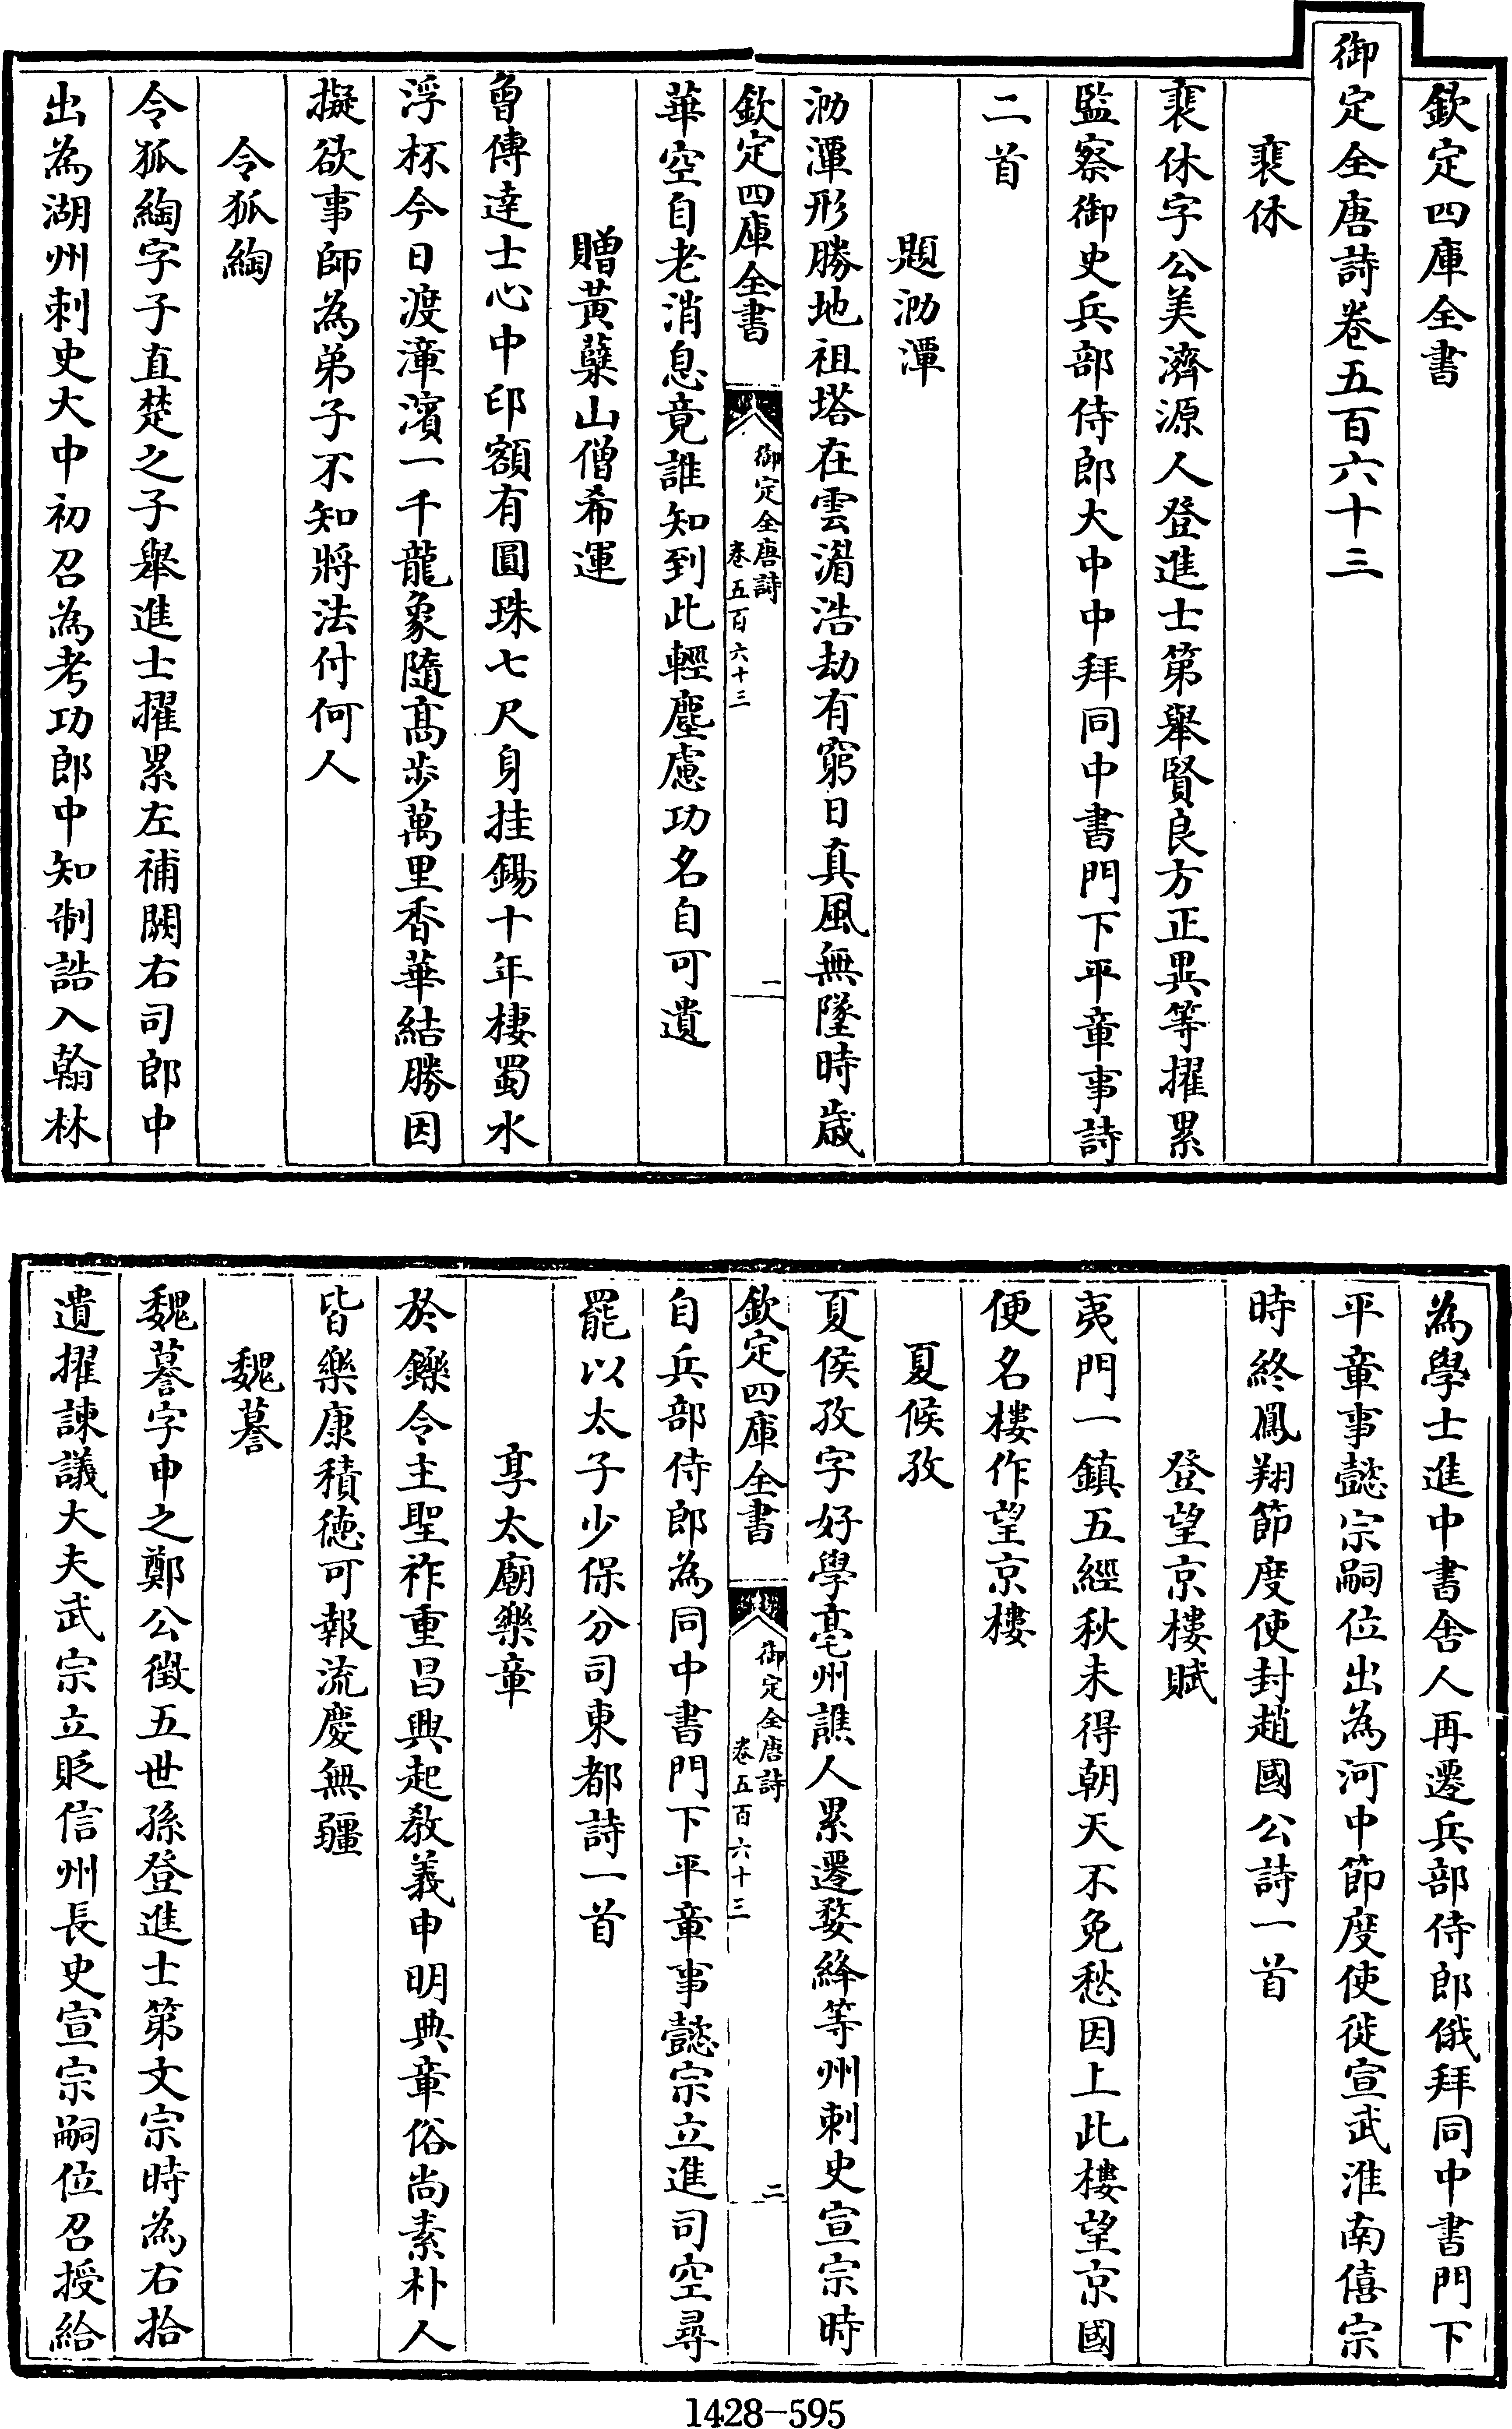 欽定四庫全書
御定全唐詩卷五百六十三
裴休
裴休字公美濟源人登進士第舉賢良方正異等擢累
監察御史兵部侍郎大中中拜同中書門下平章事詩
二首
題泐潭
泐潭形勝地祖塔在雲湄浩劫有窮日真風無墜時歲
欽定四庫全書
御定全唐詩
卷五百六十三
一
華空自老消息竟誰知到此輕塵慮功名自可遺
贈黃蘗山僧希運
曾傳達士心中印額有圓珠七尺身挂錫十年棲蜀水
浮杯今日渡漳濱一千龍象隨髙步萬里香華結勝因
擬欲事師為弟子不知將法付何人
令狐綯
令狐綯字子直楚之子舉進士擢累左補闕右司郎中
出為湖州刺史大中初召為考功郎中知制誥入翰林
為學士進中書舍人再遷兵部侍郎俄拜同中書門下
平章事懿宗嗣位出為河中節度使徙宣武淮南僖宗
時終鳳翔節度使封趙國公詩一首
登望京樓賦
夷門一鎮五經秋未得朝天不免愁因上此樓望京國
便名樓作望京樓
夏候孜
夏侯孜字好學亳州譙人累遷婺絳等州刺史宣宗時
欽定四庫全書
御定全唐詩
卷五百六十三
二
自兵部侍郎為同中書門下平章事懿宗立進司空尋
罷以太子少保分司東都詩一首
享太廟樂章
於鑠令主聖祚重昌興起敎義申明典章俗尚素朴人
皆樂康積徳可報流慶無疆
魏謩
魏謩字申之鄭公徵五世孫登進士第文宗時為右拾
遺擢諫議大夫武宗立貶信州長史宣宗嗣位召授給
1428-595